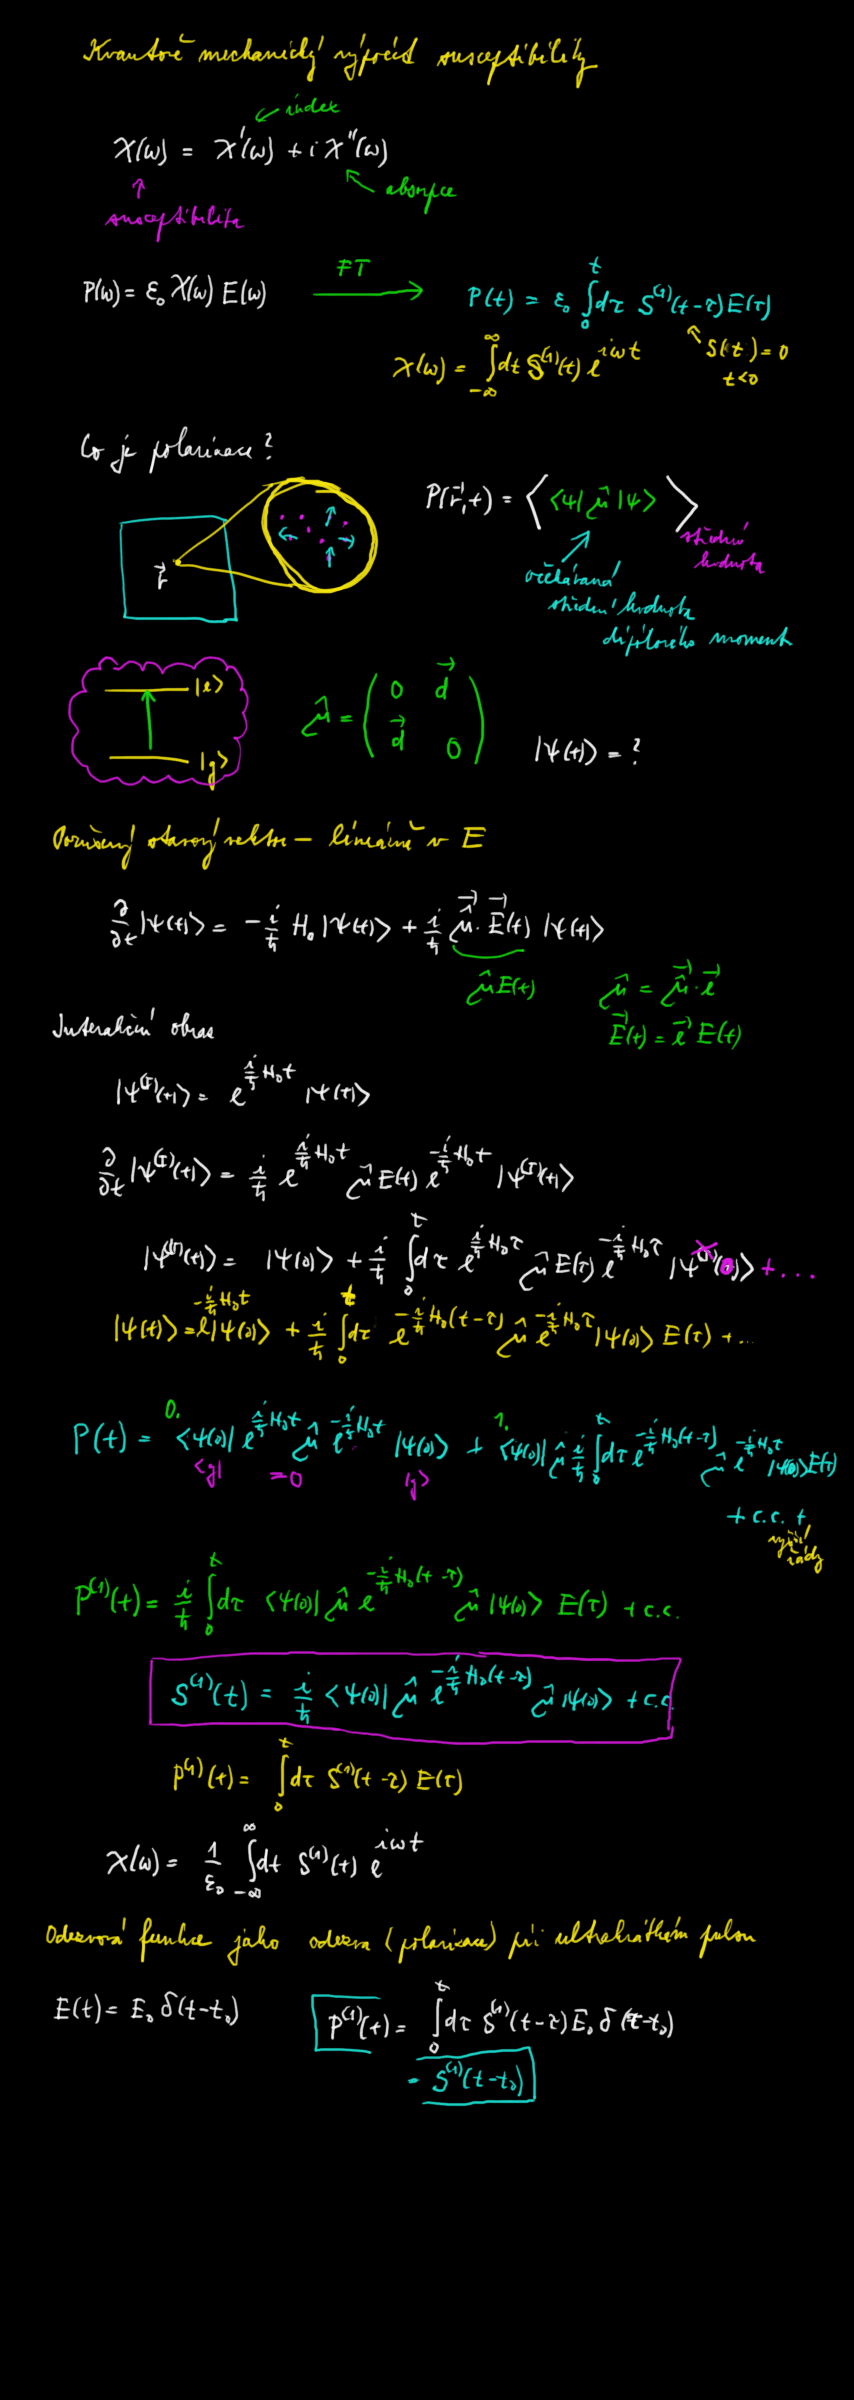 Kvantově mechanický výpočet susceptibility
index
χ(ω) = χ'(ω) + i χ''(ω)
absorpce
susceptibilita
P(ω) = ε₀ χ(ω) E(ω)
FT
P(t) = ε₀ ∫₀ᵗ dτ S⁽¹⁾(t-τ) E(τ)
χ(ω) = ∫_{-∞}^{∞} dt S⁽¹⁾(t) e^{iωt}
S(t) = 0
t<0
Co je polarizace?
P(r⃗,t) = ⟨ ⟨ψ|μ̂|ψ⟩ ⟩
střední
hodnota
r⃗
očekávaná
střední hodnota
dipólového moment
|e⟩
|g⟩
μ̂ = ( 0 d⃗
d⃗ 0 )
|ψ(t)⟩ = ?
Porušený stavový vektor – lineárně v E
∂/∂t |ψ(t)⟩ = - i/ħ H₀ |ψ(t)⟩ + i/ħ μ̂⃗ · E⃗(t) |ψ(t)⟩
μ̂ E(t)
μ̂ = μ̂⃗ · e⃗
E⃗(t) = e⃗ E(t)
Interakční obraz
|ψ^{(I)}(t)⟩ = e^{i/ħ H₀t} |ψ(t)⟩
∂/∂t |ψ^{(I)}(t)⟩ = i/ħ e^{i/ħ H₀t} μ̂ E(t) e^{-i/ħ H₀t} |ψ^{(I)}(t)⟩
|ψ^{(I)}(t)⟩ = |ψ(0)⟩ + i/ħ ∫₀ᵗ dτ e^{i/ħ H₀τ} μ̂ E(τ) e^{-i/ħ H₀τ} |ψ(0)⟩ + ...
|ψ(t)⟩ = e^{-i/ħ H₀t} |ψ(0)⟩ + i/ħ ∫₀ᵗ dτ e^{-i/ħ H₀(t-τ)} μ̂ e^{-i/ħ H₀τ} |ψ(0)⟩ E(τ) + ...
0.
1.
P(t) = ⟨ψ(0)| e^{i/ħ H₀t} μ̂ e^{-i/ħ H₀t} |ψ(0)⟩ + ⟨ψ(0)| μ̂ i/ħ ∫₀ᵗ dτ e^{-i/ħ H₀(t-τ)} μ̂ e^{-i/ħ H₀τ} |ψ(0)⟩ E(τ)
⟨g| =0 |g⟩
+ c.c. +
vyšší
řády
P⁽¹⁾(t) = i/ħ ∫₀ᵗ dτ ⟨ψ(0)| μ̂ e^{-i/ħ H₀(t-τ)} μ̂ |ψ(0)⟩ E(τ) + c.c.
S⁽¹⁾(t) = i/ħ ⟨ψ(0)| μ̂ e^{-i/ħ H₀(t-τ)} μ̂ |ψ(0)⟩ + c.c.
P⁽¹⁾(t) = ∫₀ᵗ dτ S⁽¹⁾(t-τ) E(τ)
χ(ω) = 1/ε₀ ∫_{-∞}^{∞} dt S⁽¹⁾(t) e^{iωt}
Odezvová funkce jako odezva (polarizace) při ultrakrátkém pulsu
E(t) = E₀ δ(t-t₀)
P⁽¹⁾(t) = ∫₀ᵗ dτ S⁽¹⁾(t-τ) E₀ δ(τ-t₀)
= S⁽¹⁾(t-t₀)